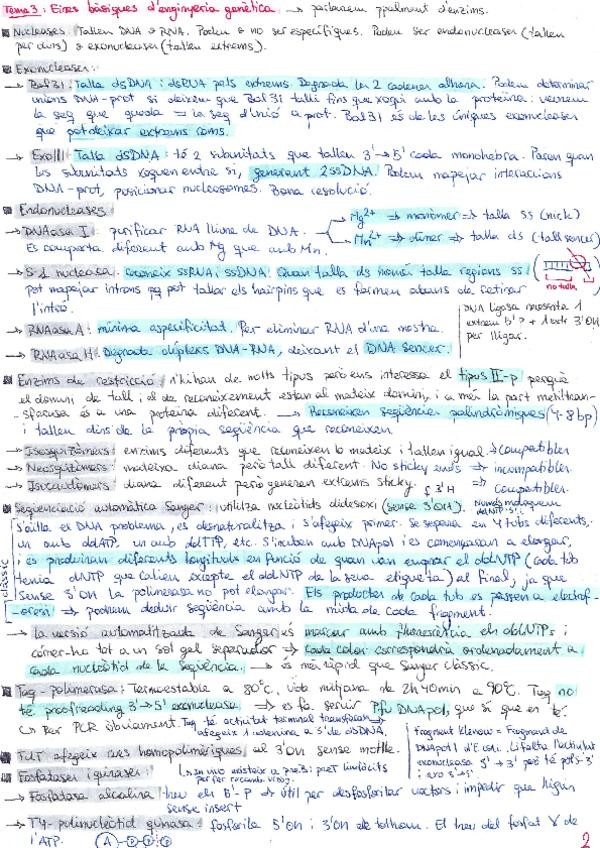 Tema 3: Eines bàsiques d'enginyeria genètica. → parlarem ppalment d'enzims.
Nucleases: Tallen DNA o RNA. Poden o no ser específiques. Poden ser endonucleases (tallen
per dins) o exonucleases (tallen extrems).
Exonucleases:
→ Bal31: Talla dsDNA i dsRNA pels extrems. Degrada les 2 cadenes alhora. Podem determinar
unions DNA-prot si deixem que Bal31 talli fins que xoqui amb la proteïna: veurem
la seq que queda = la seq d'unió a prot. Bal31 és de les úniques exonucleases
que pot deixar extrems roms.
→ ExoIII: Talla dsDNA: té 2 subunitats que tallen 3'→5' cada monohebra. Paren quan
les subunitats xoquen entre si, generant 2 ssDNA. Podem mapejar interaccions
DNA-prot, posicionar nucleosomes. Bona resolució.
Endonucleases
→ DNAasa I: purificar RNA lliure de DNA.
Es comporta diferent amb Mg que amb Mn.
Mg2+ → monòmer → talla ss (nick)
Mn2+ → dímer → talla ds (tall sencer)
→ S-1 nucleasa: reconeix ssRNA i ssDNA. Quan talla ds només talla regions ss
pot mapejar introns pq pot tallar els hairpins que es formen abans de retirar
l'intró.
no talla
→ RNAasa A: mínima especificitat. Per eliminar RNA d'una mostra.
→ RNAasa H: Degrada dúplexs DNA-RNA, deixant el DNA sencer.
DNA ligasa necessita 1
extrem 5'P + 1 extr 3'OH
per lligar.
Enzims de restricció: n'hi han de molts tipus però ens interessa el tipus II-p perquè
el domini de tall i el de reconeixement estan al mateix domini, i a més la part metiltran-
sferasa és a una proteïna diferent. → Reconeixen seqüències palindròmiques (4-8bp)
i tallen dins de la pròpia seqüència que reconeixen
→ Isosquizòmers: enzims diferents que reconeixen lo mateix i tallen igual → compatibles
→ Neosquizòmers: mateixa diana però tall diferent. No sticky ends → incompatibles.
→ Isocaudòmers: diana diferent però generen extrems sticky. → compatibles.
Seqüenciació automàtica Sanger: utilitza nucleòtids didesoxi (sense 3'OH).
clàssic
S'aïlla el DNA problema, es desnaturalitza i s'afegeix primer. Se separa en 4 tubs diferents,
un amb ddATP, un amb ddTTP, etc. S'incuben amb DNApol i es començaran a elongar,
i es produiran diferents longituds en funció de quan van enganxar el ddNTP (cada tub
tenia dNTP que calien excepte el ddNTP de la seva etiqueta) al final, ja que
sense 3'OH la polimerasa no pot elongar. Els productes de cada tub es passen a electrof-
oresi → podrem deduir seqüència amb la mida de cada fragment.
→ la versió automatitzada de Sanger és marcar amb fluorescència els ddNTPs i
córrer-ho tot a un sol gel separador → cada color correspondrà ordenadament a
cada nucleòtid de la seqüència. → és més ràpid que Sanger clàssic.
Taq-polimerasa: Termoestable a 80°C, vida mitjana de 2h 40min a 90°C. Taq no
té proofreading 3'→5' exonucleasa → es fa servir Pfu DNApol, que sí que en té.
↳ Per PCR òbviament. Taq té activitat terminal transferasa →
afegeix 1 adenina a 3' de dsDNA.
TdT afegeix cues homopolimèriques al 3'OH sense motlle.
Fragment Klenow = Fragment de
DNApol I d'E. coli. Li falta l'activitat
exonucleasa 5'→3' però té pol 5'-3'
i exo 3'→5'
Fosfatases i quinases:
→ Fosfatasa alcalina: treu els 5'-P → útil per desfosforilar vectors i impedir que lligin
sense insert
→ T4-polinucleòtid quinasa: fosforila 5'OH i 3'OH de tothom. El treu del fosfat γ de
l'ATP. A-P-P-P
2